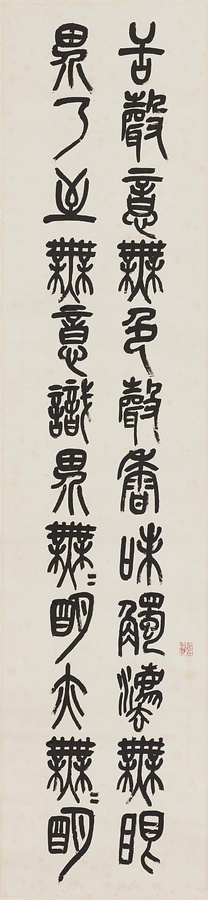 舌聲意無色聲香味觸灋無眼
界乃至無意識界無〻明亦無〻明